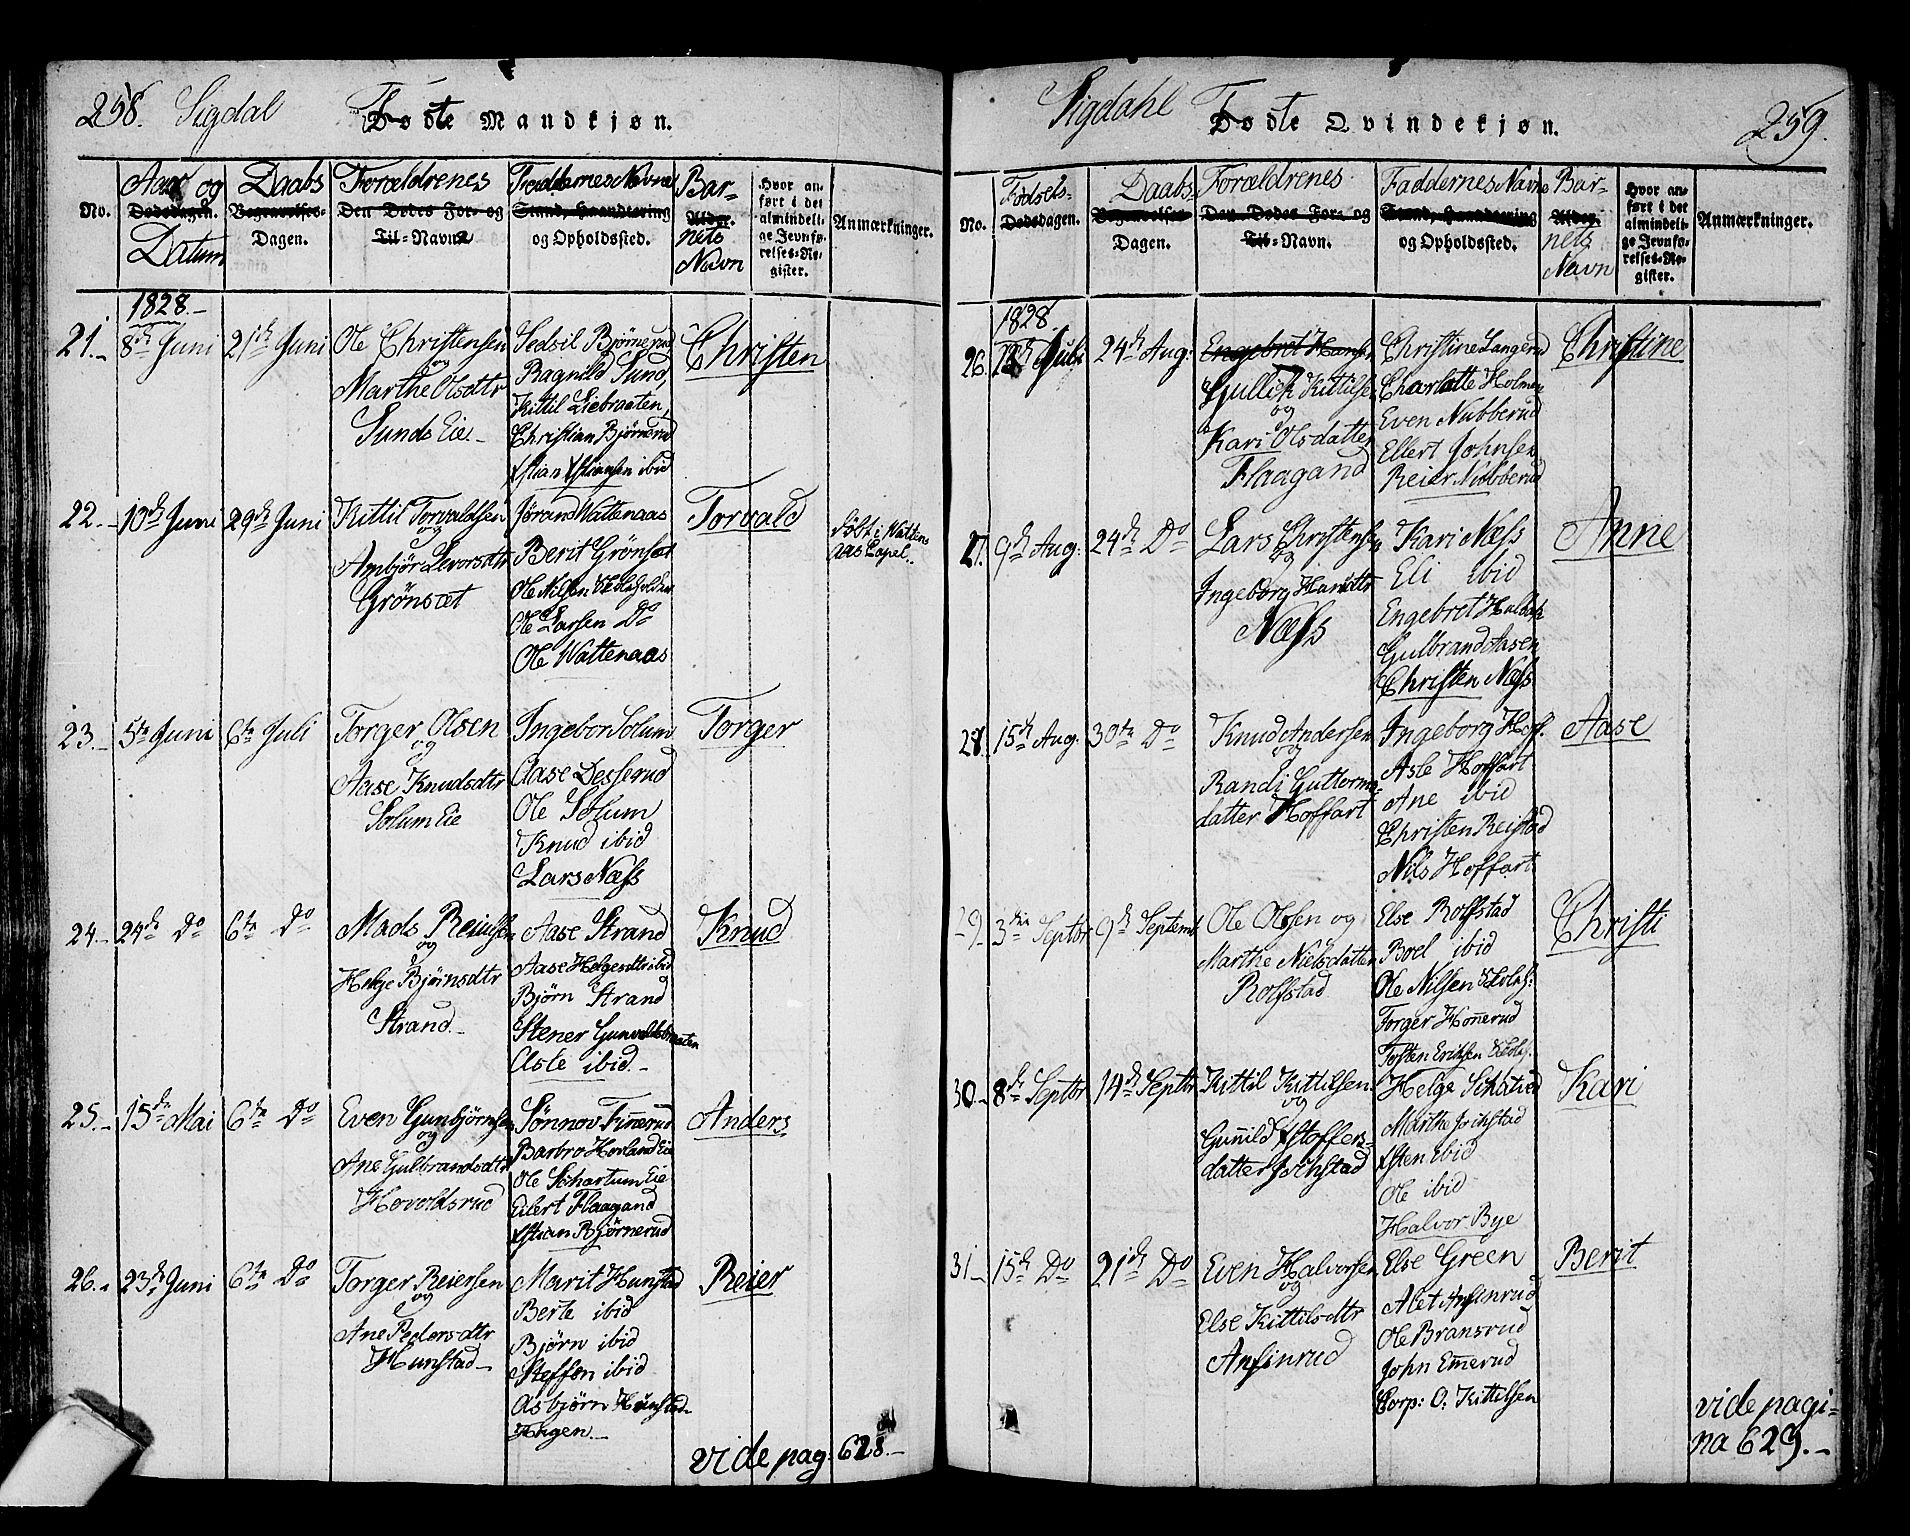 258. Sigdal Fødte Mandkjøn.
No.
Aar og
Dødsdagen.
Datum
Daabs
Begravelses-
Dagen.
Forældrenes
Den Dødes For- og
Til-Navne
Faddernes Navne
Stand, Haandtering
og Opholdssted.
Bar-
Alder.
nets
Navn
Hvor an-
ført i det
almindeli-
ge Jevnfø-
relses-Re-
gister.
Anmærkninger.
1828.-
21.- 8de Juni 21de Juni
Ole Christensen
og
Marthe Olsdtr
Sunds Eie-
Sedsil Bjørnerud
Ragnild Sund,
Kittil Liebraaten,
Christian Bjørnerud
Xstian Xstiansen ibid
Christen
22.- 13de Juni 29de Juni
Kittil Torvaldsen
og
Ambjør Levorsdtr
Grønsæt
Jøran Wattenaas
Berit Grønsæt
Ole Nilsen Skoleholder
Ole Larsen Do
Ole Wattenaas
Torvald
døbt i Watten
aas Capel.
23.- 5te Juni 6te Juli
Torger Olsen
og
Aase Knudsdtr
Solum Eie
Ingebor Solum
Aase Desserud
Ole Solum
Knud ibid
Lars Næss
Torger
24.- 24de Do 6te Do
Mads Reiersen
og
Helge Bjørnsdtr
Strand.-
Aase Strand
Aase Helgesdtr ibid
Bjørn Strand
Stener Gunvaldsbraaten
Aste ibid.-
Knud
25.- 15de Mai 6te Do
Even Gunbjørnsen
og
Ane Gulbrandsdtr
Hovoldsrud
Sønnov Finnerud
Barbro Hovland Eie
Ole Schartum Eie
Eilert Flaagand
Xstian Bjørnerud
Anders
26.- 23de Juni 6te Do
Torger Reiersen
og
Ane Pedersdtr
Hunstad-
Marit Hunstad
Berte ibid
Bjørn ibid
Steffen ibid
Asbjørn Hunstad-
Hagen.-
Reier
vide pag: 628.-
Sigdahl Fødte Qvindekjøn. 259.
No.
Fødsels-
Dødsdagen.
Daabs-
Begravelses-
Dagen.
Forældrenes
Den Dødes For- og
Til-Navn.
Faddernes Navne
Stand, Haandtering
og Opholdssted.
Bar-
Alder.
nets
Navn
Hvor an-
ført i det
almindeli-
ge Jevnfø-
relses-Re-
gister.
Anmærkninger.
1828.
26. Juli 24de Aug:
Engebret Hansen
Gullik Kittilsen
og
Kari Olsdatter
Flaagand
Christine Langerud
Charlotte Holmen
Even Nubberud
Ellert Johnsen
Reier Nubberud
Christine
27. 9de Aug: 24de Do
Lars Christensen
og
Ingeborg Hansdtr
Næss
Kari Næss
Eli ibid
Engebret
Gulbrand Aasen
Christen Næss
Anne
28. 15de Aug: 30te Do
Knud Andersen
og
Randi Guttorms
datter Hoffart
Ingeborg Hoff.
Asle Hoffart
Ane ibid
Christen Reistad
Nils Hoffart
Aase
29.- 3die Septbr 9de Septemb
Ole Olsen og
Marthe Nielsdatter
Rolfstad
Else Rolfstad
Boel ibid
Ole Nilsen Skoleh:
Torger Honnerud
Torsten Eriksen Skoleh:
Christi
30.- 8de Septbr 14de Septbr
Kittil Kittilsen
og
Gunild Xstoffers-
datter Jokstad
Helge
Marthe Jokstad
Xsten Ibid
Ole ibid
Halvor Bye
Kari
31.- 15de Do 21de Do
Even Halvorsen
og
Else Kittilsdtr
Anfinrud
Else Green
Alet Anfinrud
Ole Bransrud
John Emmerud
Corp: O. Kittilsen
Berit
vide pagi-
na 629.-